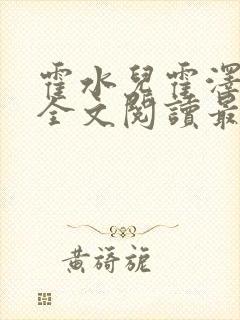 霍水兒霍澤
全文閱讀最
黃旖旎